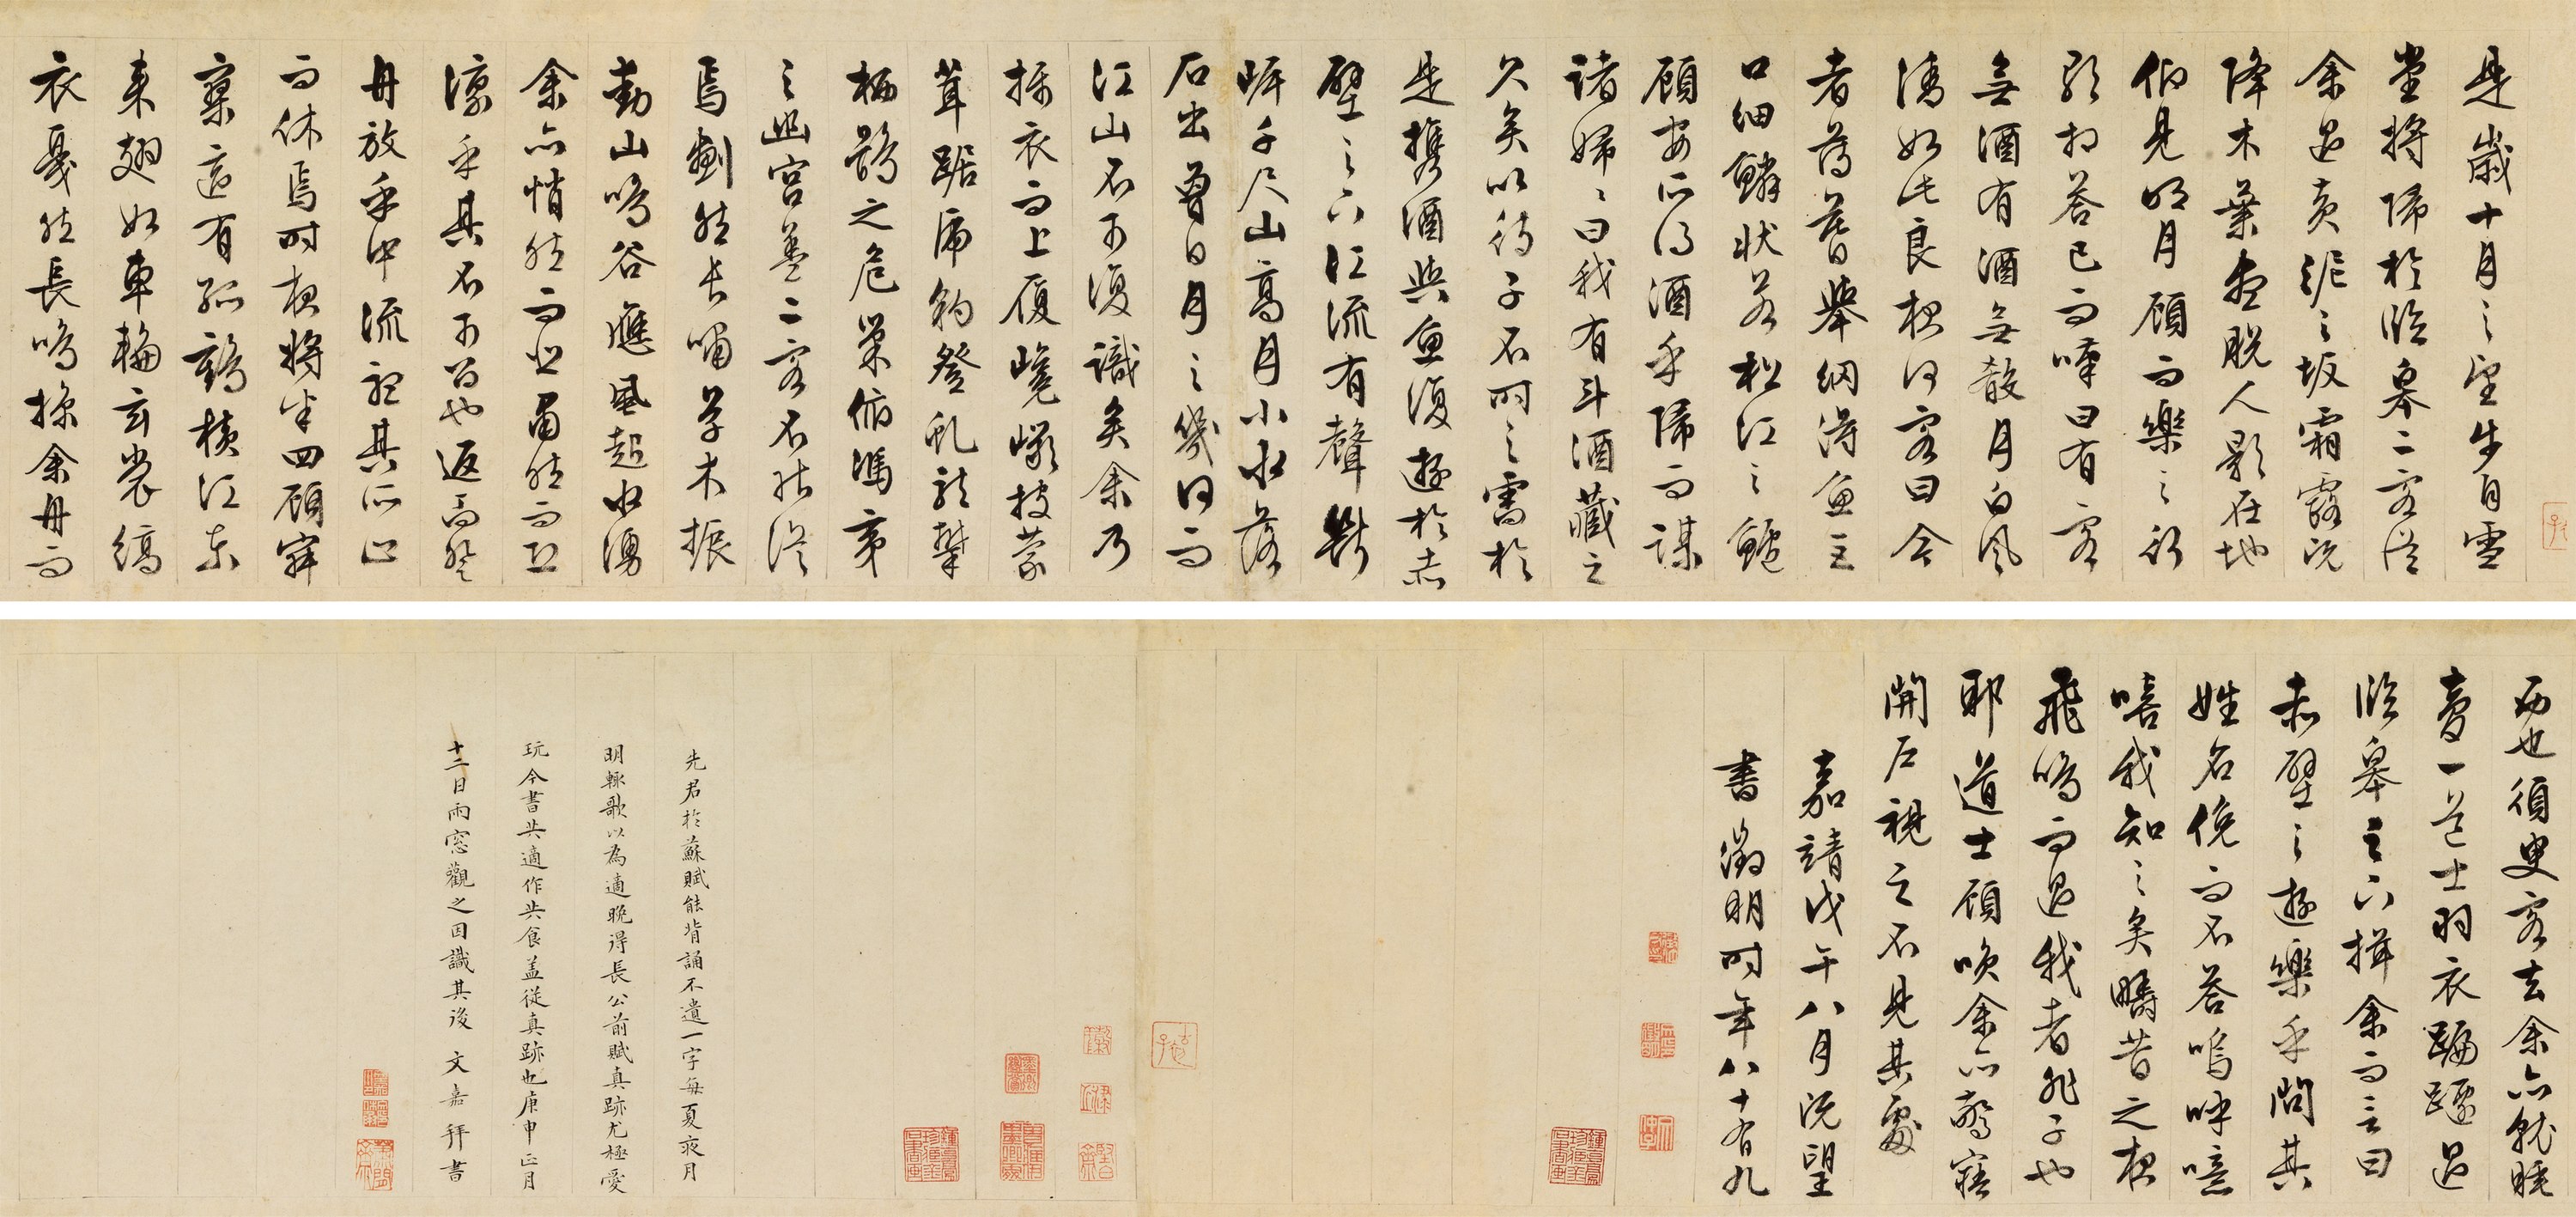 是歲十月之望步自雪
堂將歸於臨皋二客從
余過黃泥之坂霜露既
降木葉盡脫人影在地
仰見明月顧而樂之行
歌相答已而嘆曰有客
無酒有酒無殽月白風
清如此良夜何客曰今
者薄暮舉網得魚巨
口細鱗狀若松江之鱸
顧安所得酒乎歸而謀
諸婦〻曰我有斗酒藏之
久矣以待子不時之需於
是攜酒與魚復遊於赤
壁之下江流有聲斷
岸千尺山高月小水落
石出曾日月之幾何而
江山不可復識矣余乃
攝衣而上履巉巖披蒙
茸踞虎豹登虬龍攀
栖鶻之危巢俯馮夷
之幽宮蓋二客不能從
焉劃然長嘯草木振
動山鳴谷應風起水湧
余亦悄然而悲肅然而恐
凜乎其不可留也返而登
舟放乎中流聽其所止
而休焉時夜將半四顧寂
寥適有孤鶴橫江東
來翅如車輪玄裳縞
衣戛然長鳴掠余舟而
西也須臾客去余亦就睡
夢一道士羽衣蹁躚過
臨皋之下揖余而言曰
赤壁之遊樂乎問其
姓名俛而不答嗚呼噫
嘻我知之矣疇昔之夜
飛鳴而過我者非子也
耶道士顧笑余亦驚寤
開戶視之不見其處
嘉靖戊午八月既望
書徵明時年八十有九
先君於蘇賦能背誦不遺一字每夏夜月
明輒歌以為適晚得長公前賦真跡尤極愛
玩今書共適作共食蓋從真跡也庚申正月
十二日雨窓觀之因識其後 文嘉拜書